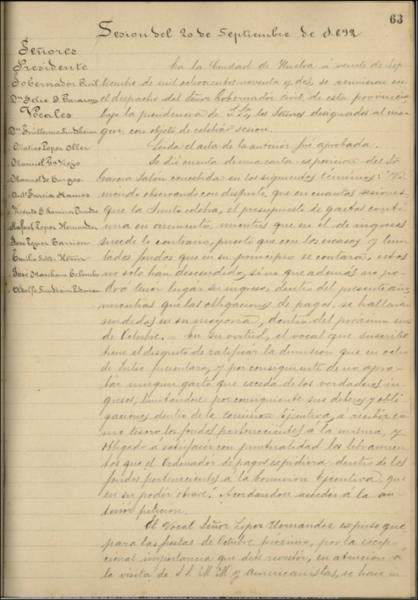 63
Sesion del 20 de Septiembre de 1892
Señores
Presidente
Gobernador Civil
Vocales
Dn Guillermo Sundheim
Mateo Lopez Oller
Manuel
Manuel de Burgos
Antº Garcia Ramos
Vicente
Rafael Lopez Hernandez
José Garrion
Emilio
José Marchena Colombo
Adolfo Sundheim
En la Ciudad de Huelva á veinte de Sep
tiembre de mil ochocientos noventa y dos, se reunieron en
el despacho del Señor Gobernador civil de esta provincia
bajo la presidencia de S.S., los Señores designados al mar
gen, con objeto de celebrar sesion.
Leida el acta de la anterior fué aprobada.
Se dió cuenta de una carta exposicion del Se
ñor concebida en los siguientes términos: "Ve
niendo observando con disgusto que en cuantas sesiones
que la Junta celebra, el presupuesto de gastos conti
nua en aumento, mientras que en el de ingresos
sucede lo contrario, puesto que con los escasos y limi
tados fondos que en su principio se contara, estos
no solo han descendido, sino que además no po
drá tener lugar su ingreso dentro del presente año,
mientras que las obligaciones de pagos, se hallarán
vendidas en su mayoria, dentro del próximo mes
de Octubre. - En su virtud, el vocal que suscribe
tiene el disgusto de ratificar la dimision que en ocho
de Julio presentara, y por consiguiente de no apro
bar ningun gasto que esceda de los verdaderos in
gresos, limitandose por consiguiente sus deberes y obli
gaciones dentro de la Comision Ejecutiva, á recibir co
mo tesorero los fondos pertenecientes á la misma, y
obligado á satisfacer con puntualidad los libramien
tos que el Ordenador de pagos espidiera dentro de los
fondos pertenecientes á la Comision Ejecutiva que
en su poder obrare." Acordandose acceder á la an
terior peticion.
El Vocal Señor Lopez Hernandez espuso que
para las fiestas de Octubre próximo, por la excep
cional importancia que han de revestir, en atencion á
la visita de S.S. M.M. y Americanistas, se hace in